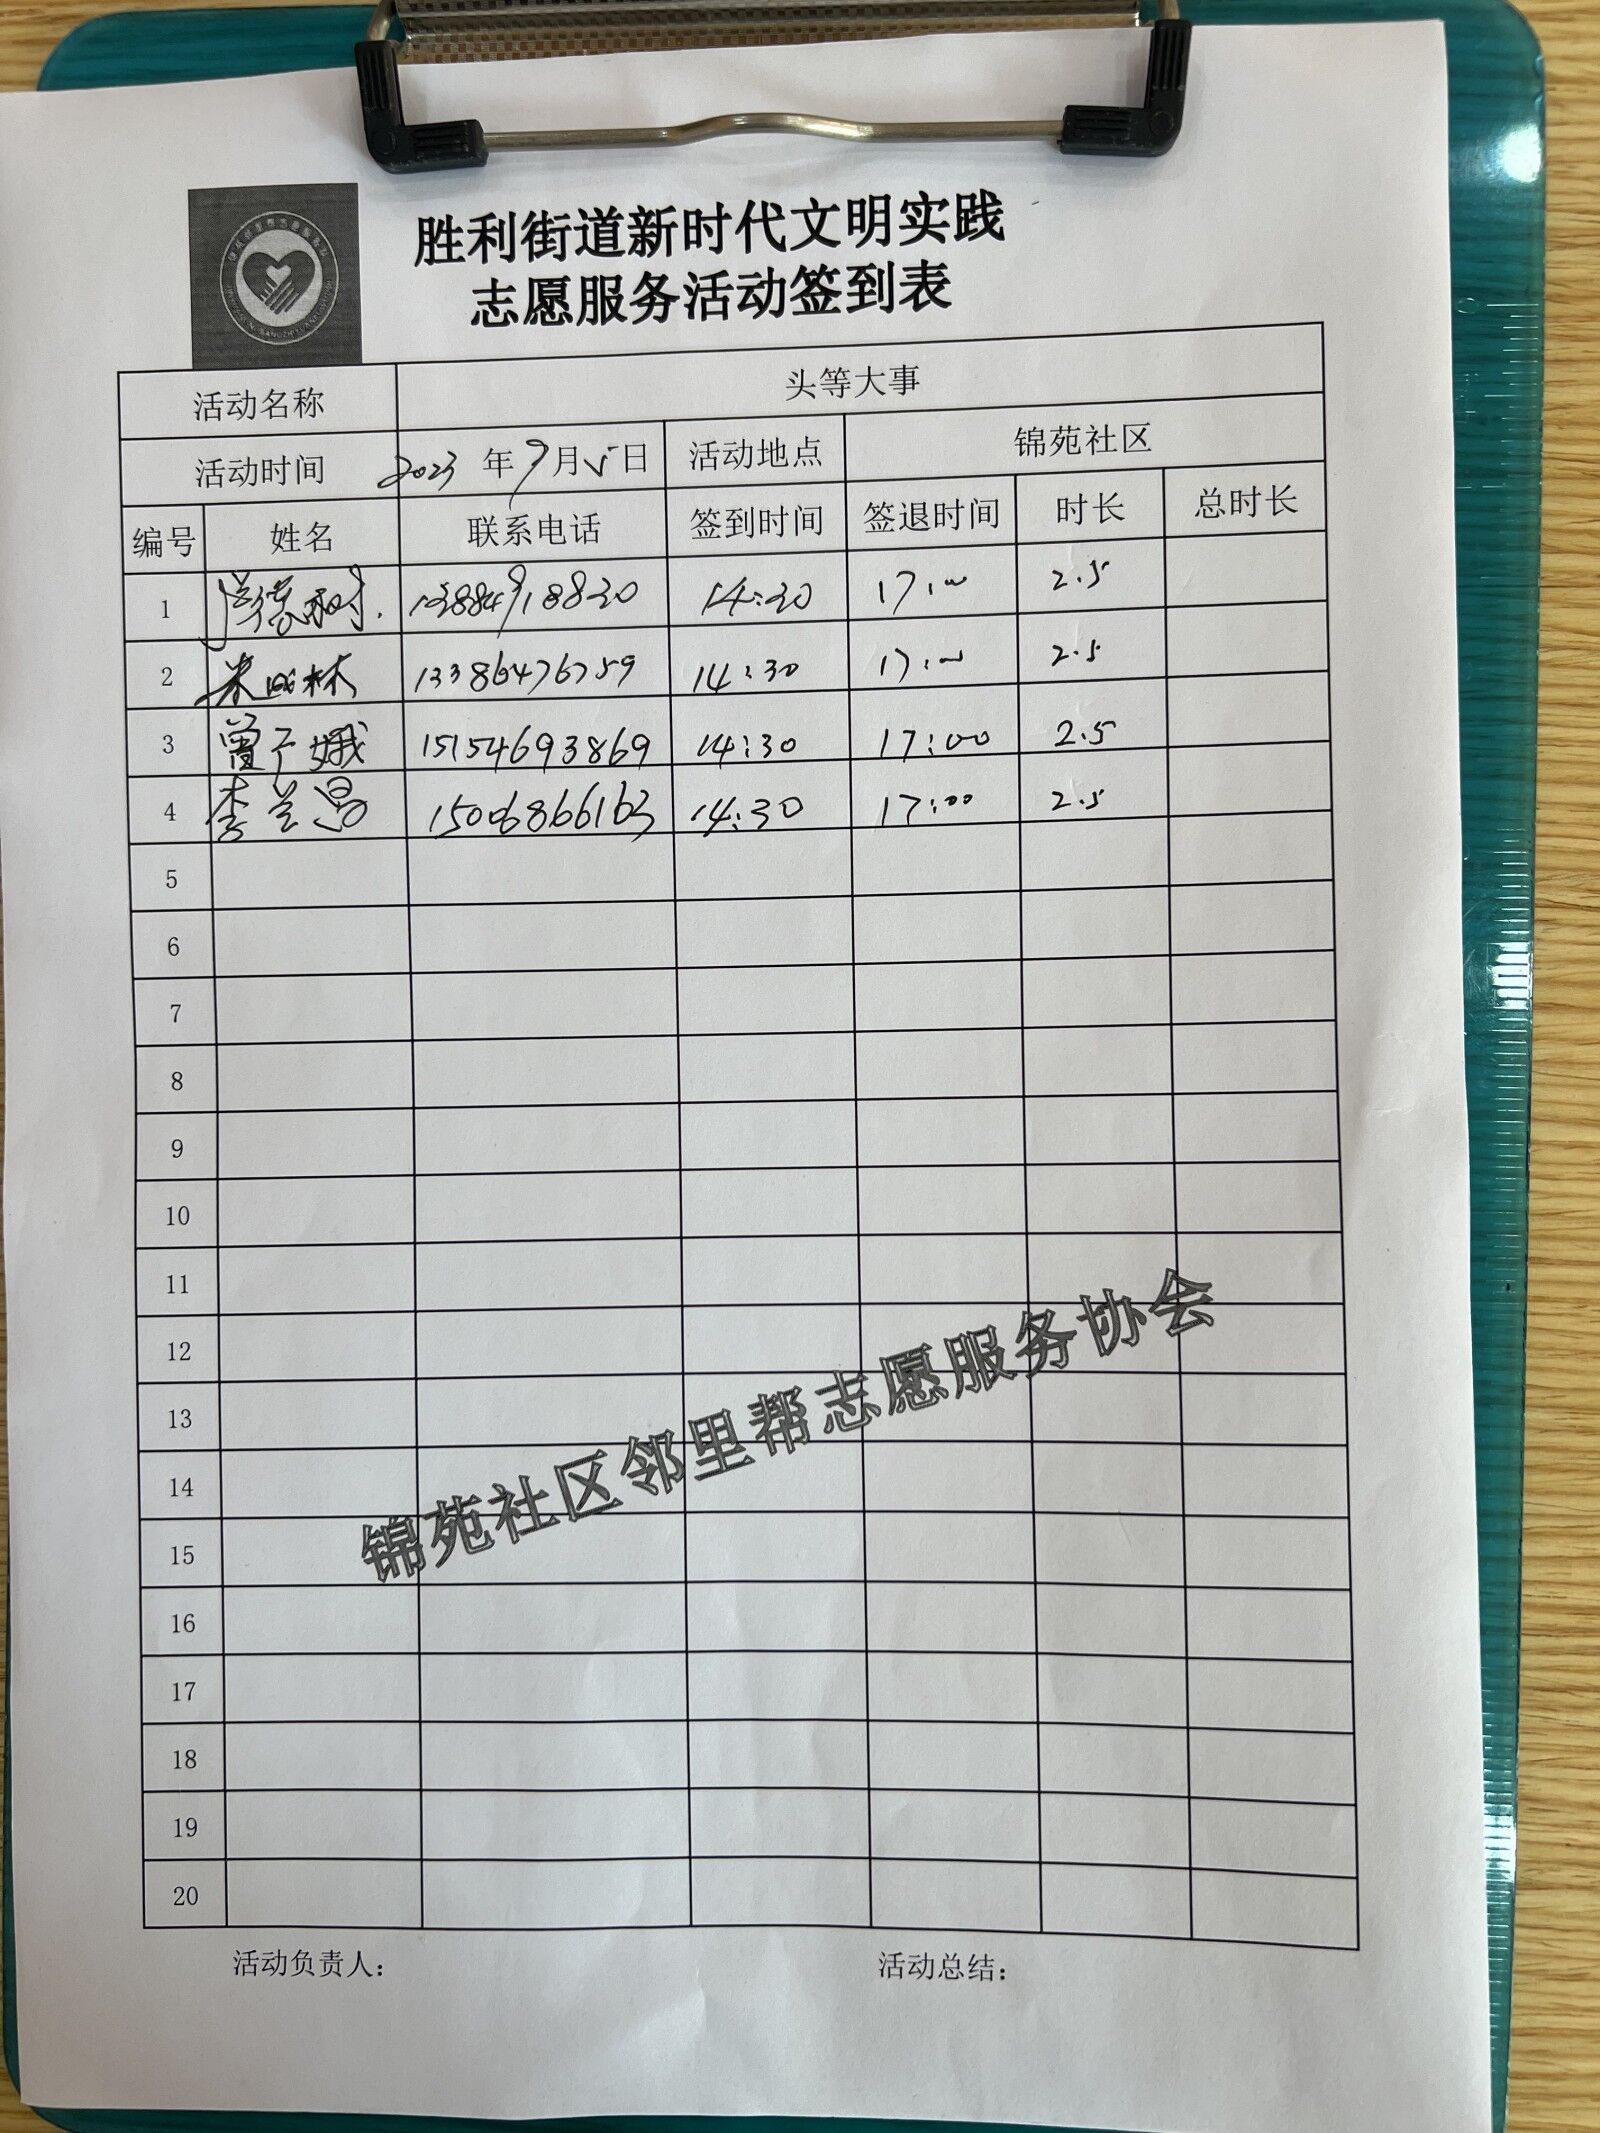 胜利街道新时代文明实践
志愿服务活动签到表
活动名称 头等大事
活动时间 2023 年 9 月 5 日 活动地点 锦苑社区
编号 姓名 联系电话 签到时间 签退时间 时长 总时长
1 14:30 17:00 2.5
2 林 13386476759 14:30 17:00 2.5
3 曾 娥 15154693869 14:30 17:00 2.5
4 李兰昌 15006866163 14:30 17:00 2.5
5
6
7
8
9
10
11
12
13
14
15
16
17
18
19
20
锦苑社区邻里帮志愿服务协会
活动负责人： 活动总结：